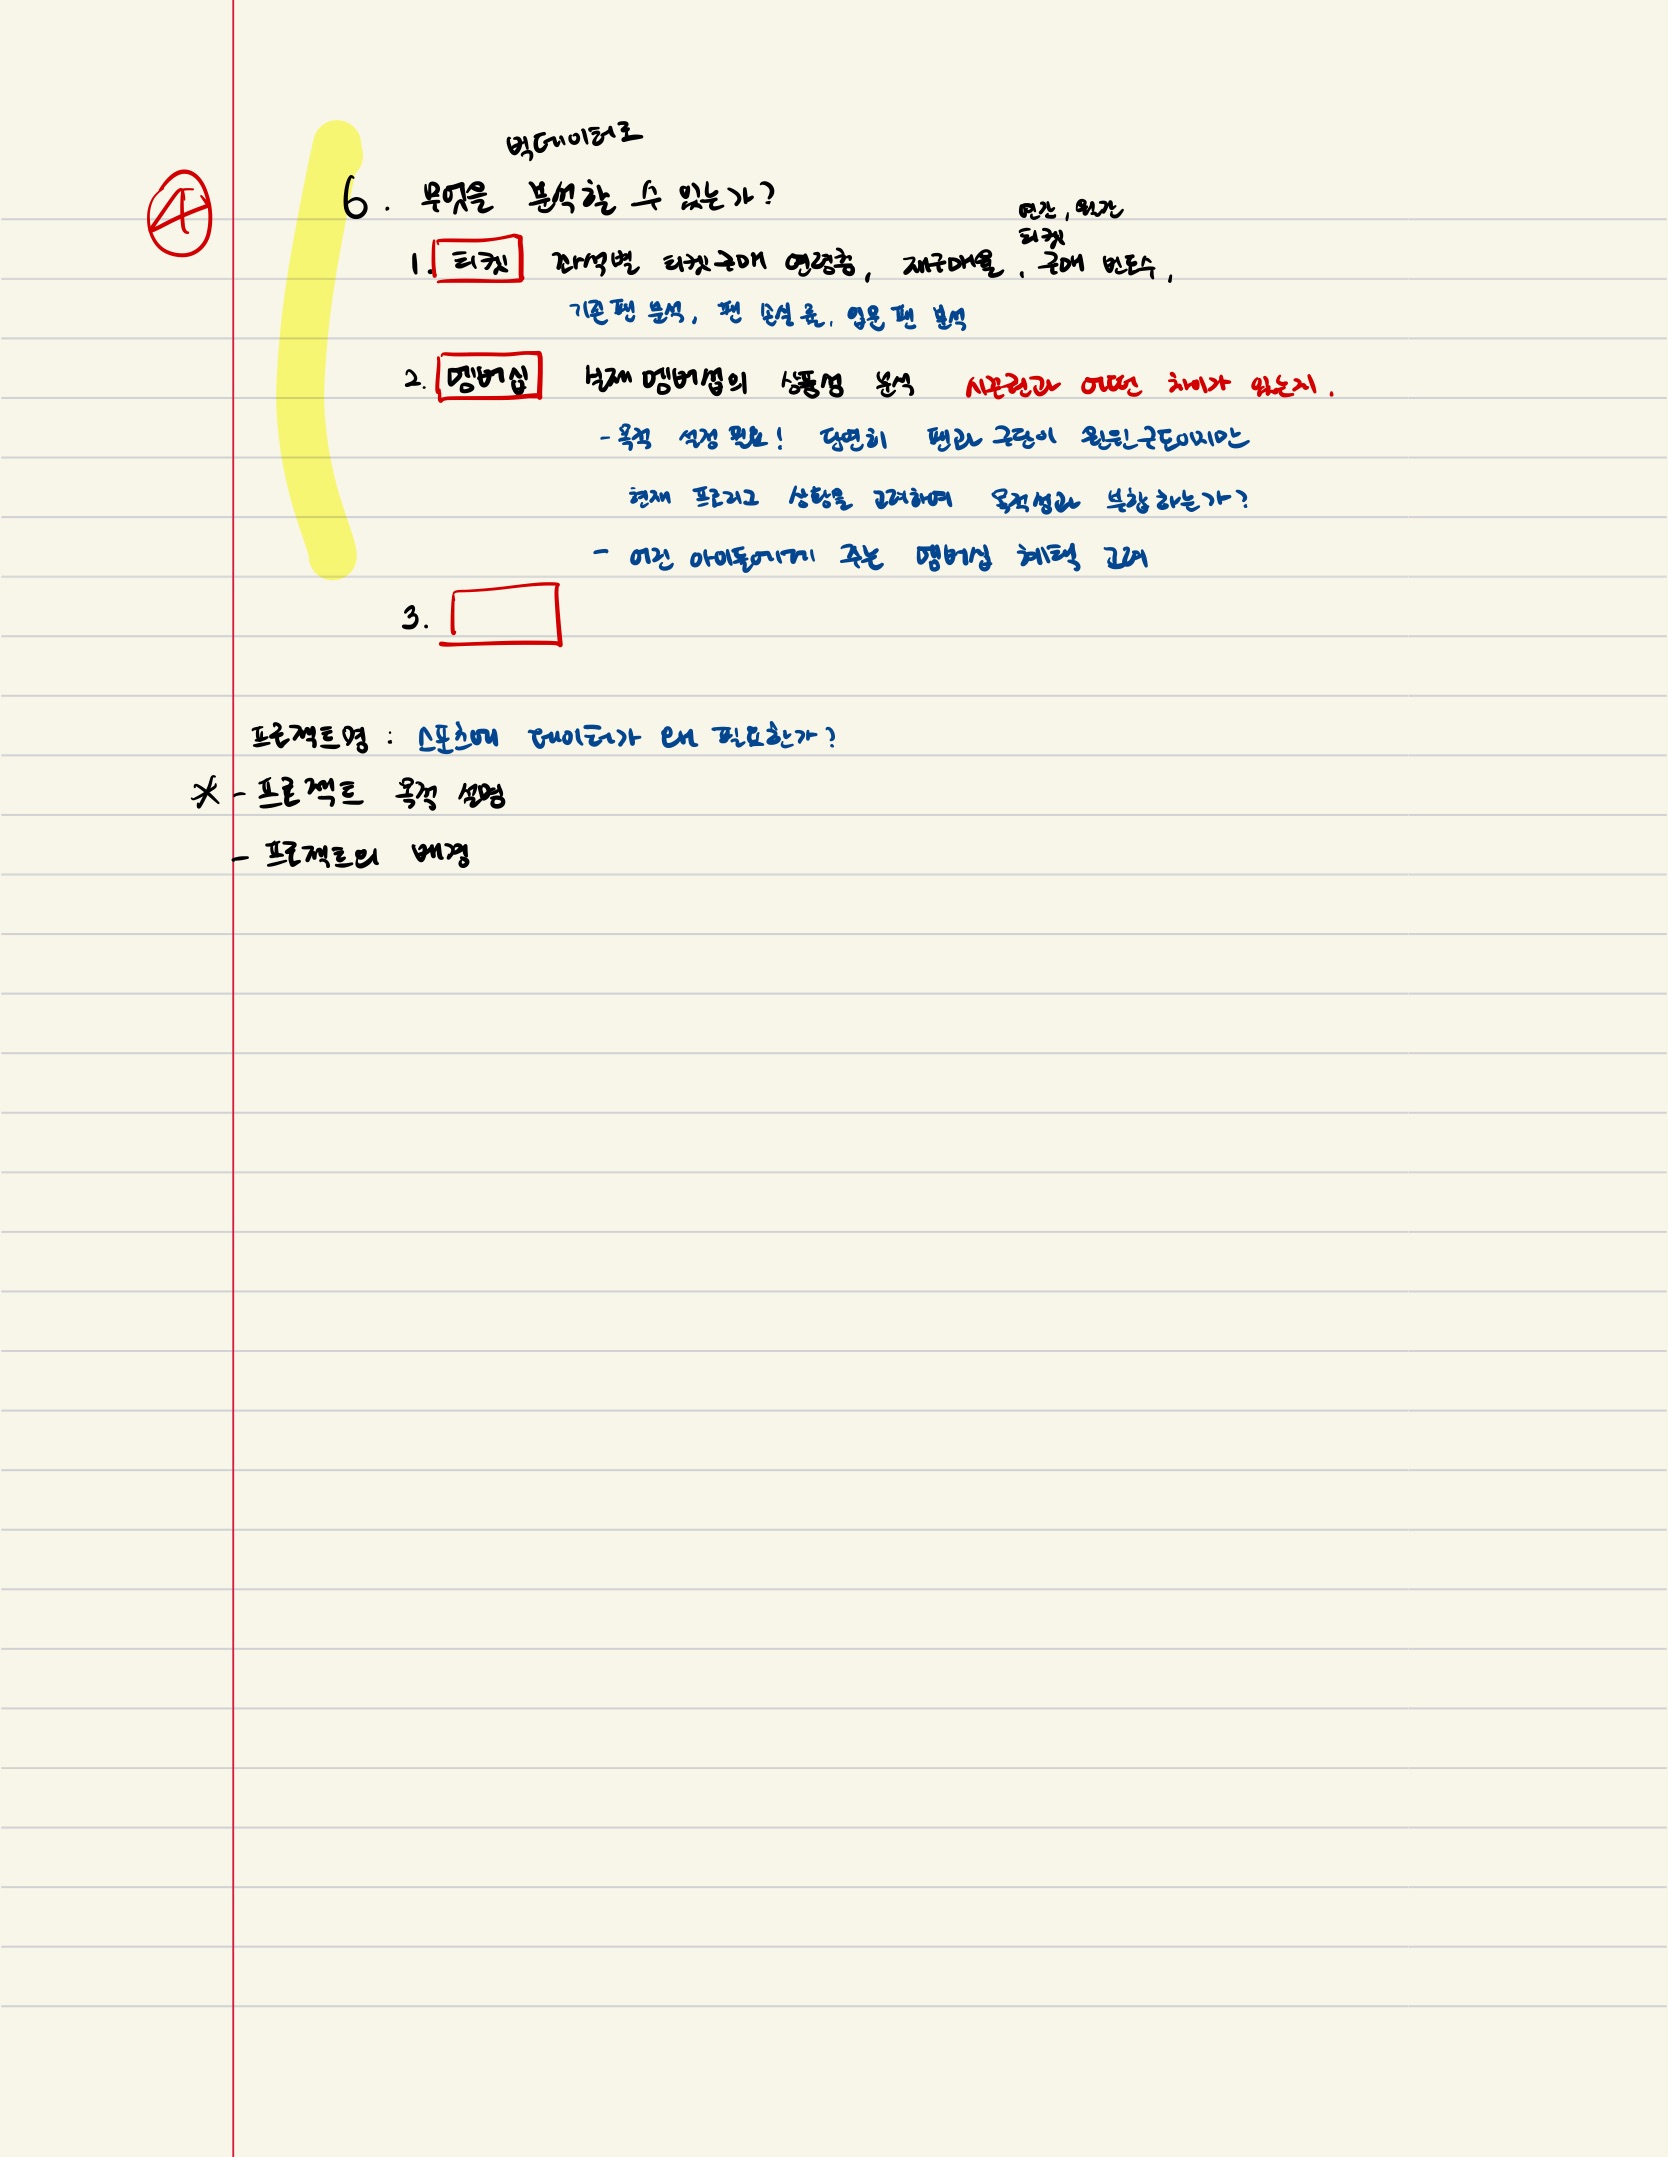 빅데이터로
④
6. 무엇을 분석할 수 있는가?
연간, 월간
티켓
1. 티켓 좌석별 티켓구매 연령층, 재구매율, 구매 빈도수,
기존팬 분석, 팬 손실률, 입문팬 분석
2. 멤버십 현재 멤버십의 상품성 분석 시즌권과 어떤 차이가 있는지.
- 목적 설정 필요! 당연히 팬과 구단이 윈윈구도이지만
현재 프로리그 상황을 고려하여 목적성과 부합하는가?
- 어린 아이들에게 주는 멤버십 혜택 고려
3.
프로젝트명 : 스포츠에 데이터가 왜 필요한가?
* - 프로젝트 목적 설명
- 프로젝트의 배경